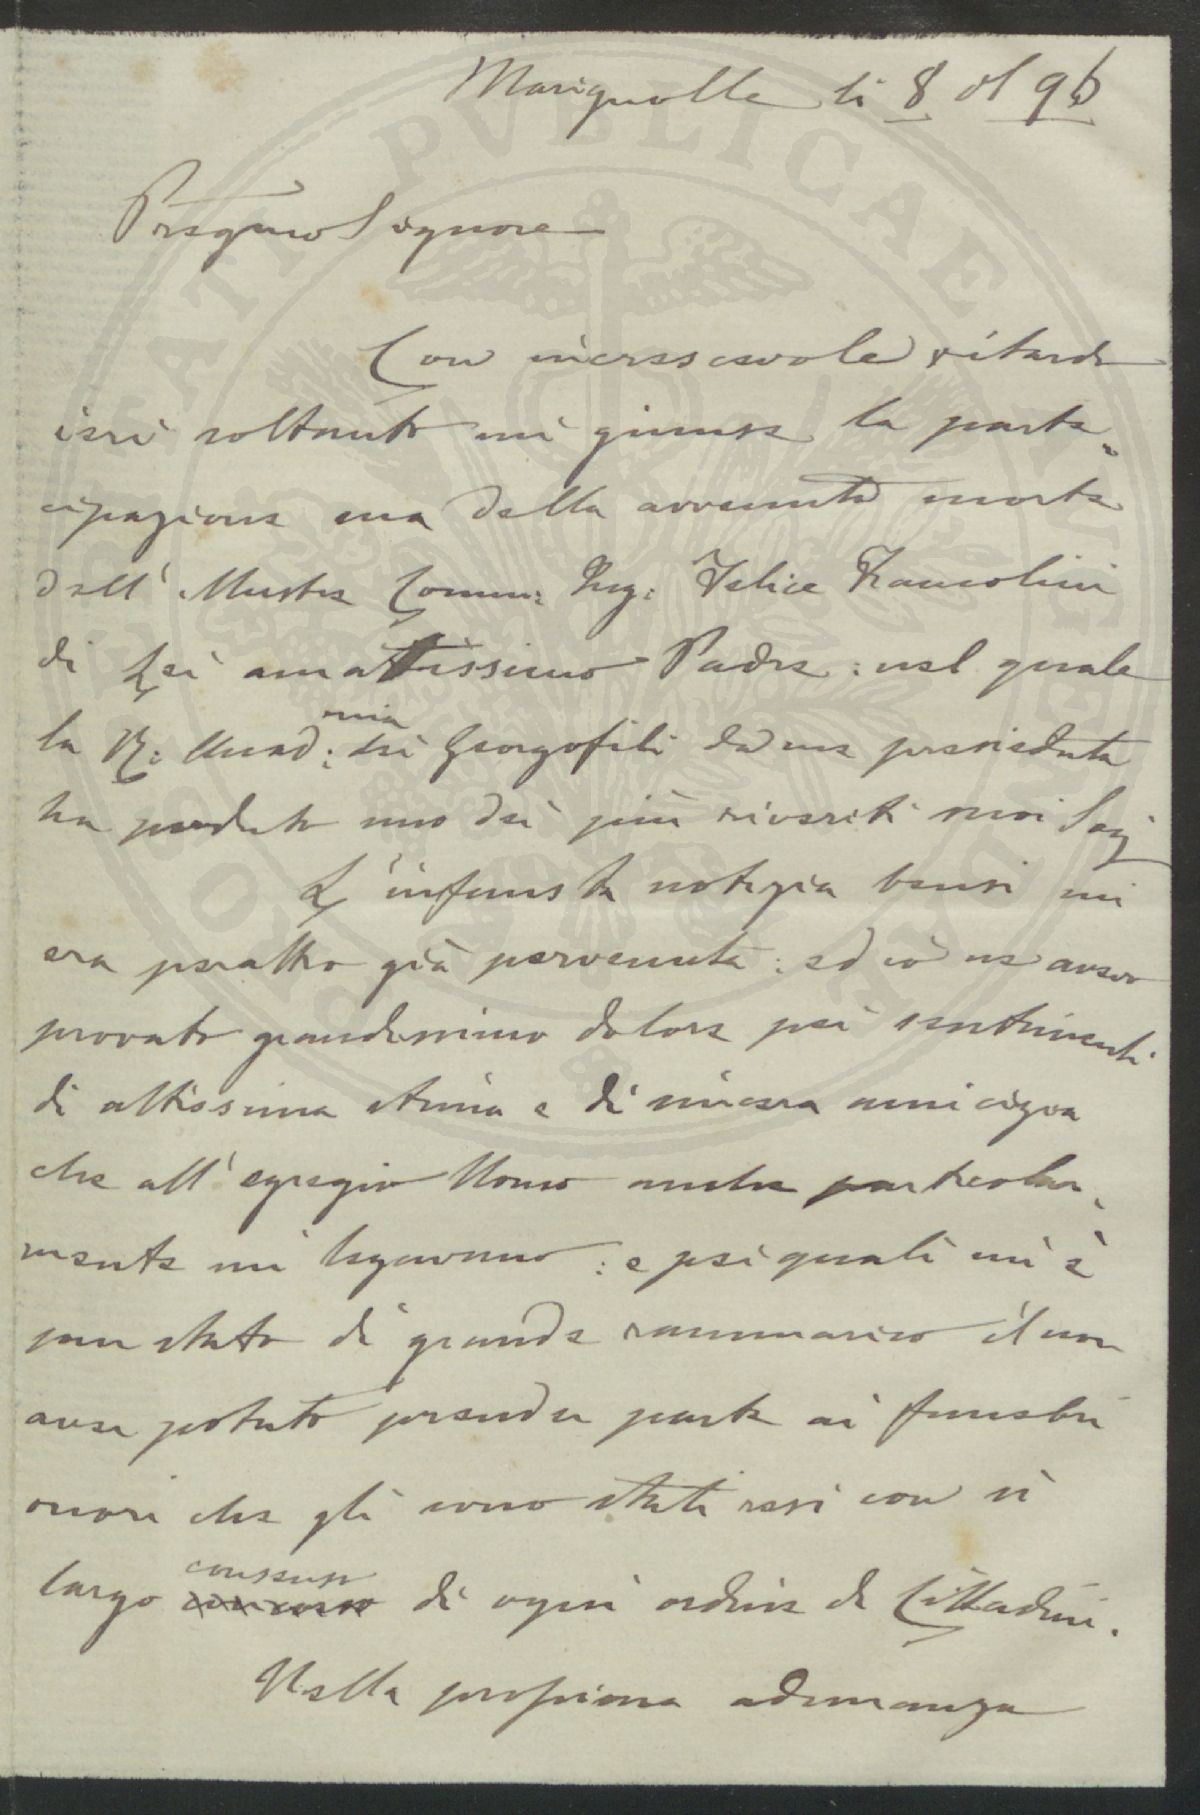 Marignolle li 8 96
Pregmo Signore
Con increscevole ritardo
ieri soltanto mi giunse la parte=
cipazione sua della avvenuta morte
dell' Illustre Comm: Ing: Felice Francolini
di Lei amatissimo Padre: nel quale
la R: Accad:mia dei Georgofili da me presieduta
ha perduto uno dei più riveriti suoi Socj
L'infausta notizia bensi mi
era peraltro già pervenuta: ed io ne avevo
provato grandissimo dolore pei sentimenti
di altissima stima e di sincera amicizia
che all' egregio Uomo anche particolar=
mente mi legavano: e pei quali mi è
pur stato di grande rammarico il non
aver potuto prender parte ai funebri
onori che gli sono stati resi con sì
largo consenso di ogni ordine di Cittadini.
Nella prossima adunanza